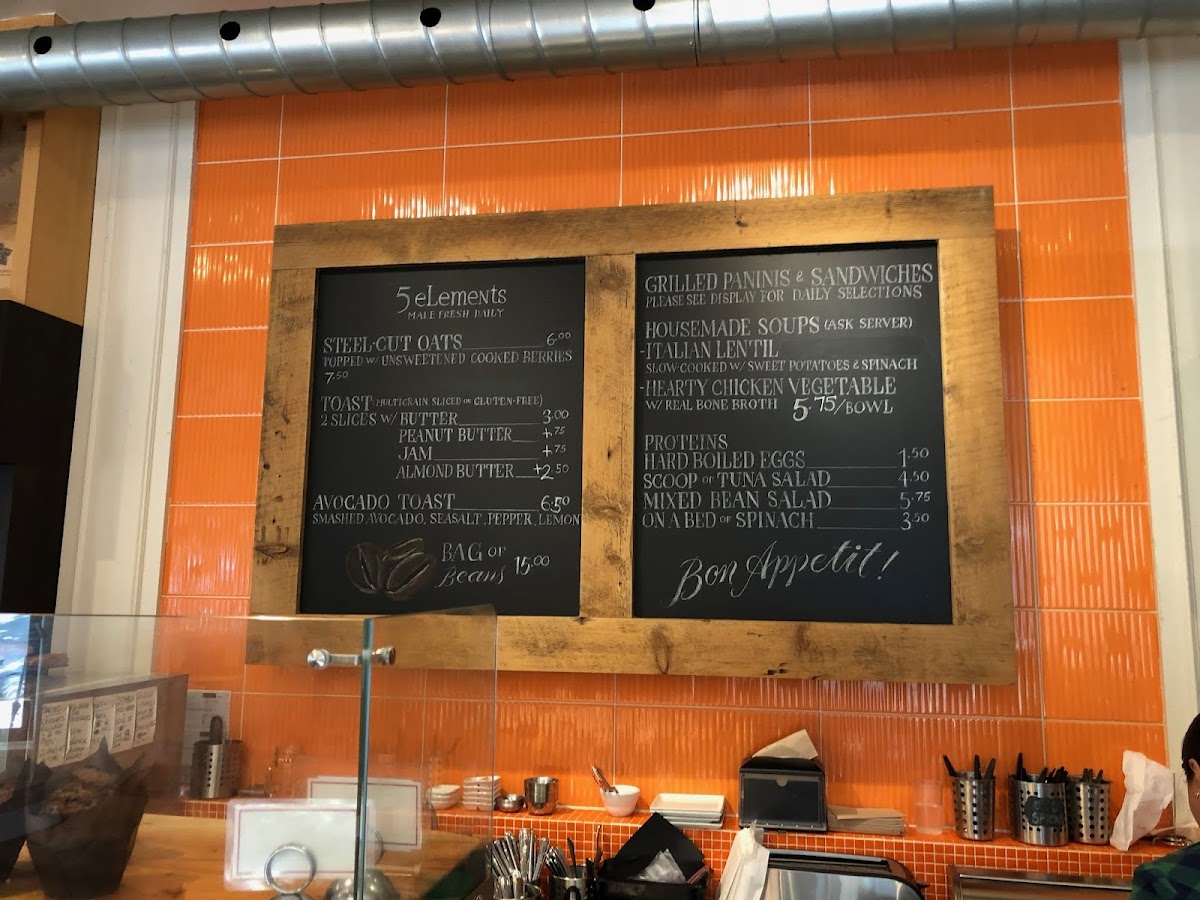 5 eLements
MADE FRESH DAILY
STEEL-CUT OATS 6.00
TOPPED W/ UNSWEETENED COOKED BERRIES
7.50
TOAST (MULTIGRAIN SLICED OR GLUTEN-FREE)
2 SLICES W/ BUTTER 3.00
PEANUT BUTTER +.75
JAM +.75
ALMOND BUTTER +2.50
AVOCADO TOAST 6.50
SMASHED AVOCADO, SEASALT, PEPPER, LEMON
BAG OF
Beans 15.00
GRILLED PANINIS & SANDWICHES
PLEASE SEE DISPLAY FOR DAILY SELECTIONS
HOUSEMADE SOUPS (ASK SERVER)
-ITALIAN LENTIL
SLOW-COOKED W/ SWEET POTATOES & SPINACH
-HEARTY CHICKEN VEGETABLE
W/ REAL BONE BROTH 5.75/BOWL
PROTEINS
HARD BOILED EGGS 1.50
SCOOP OF TUNA SALAD 4.50
MIXED BEAN SALAD 5.75
ON A BED OF SPINACH 3.50
Bon Appetit!